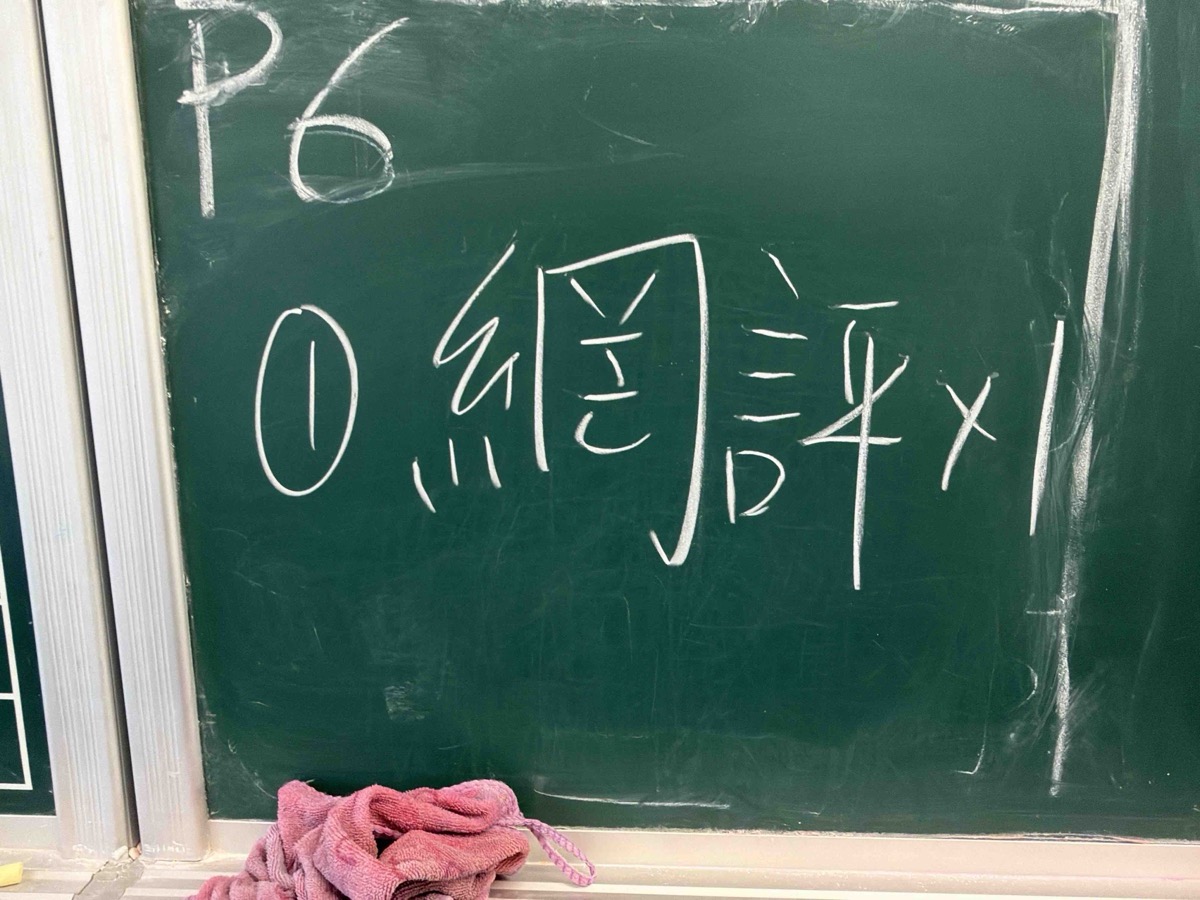 P6
① 網評x1